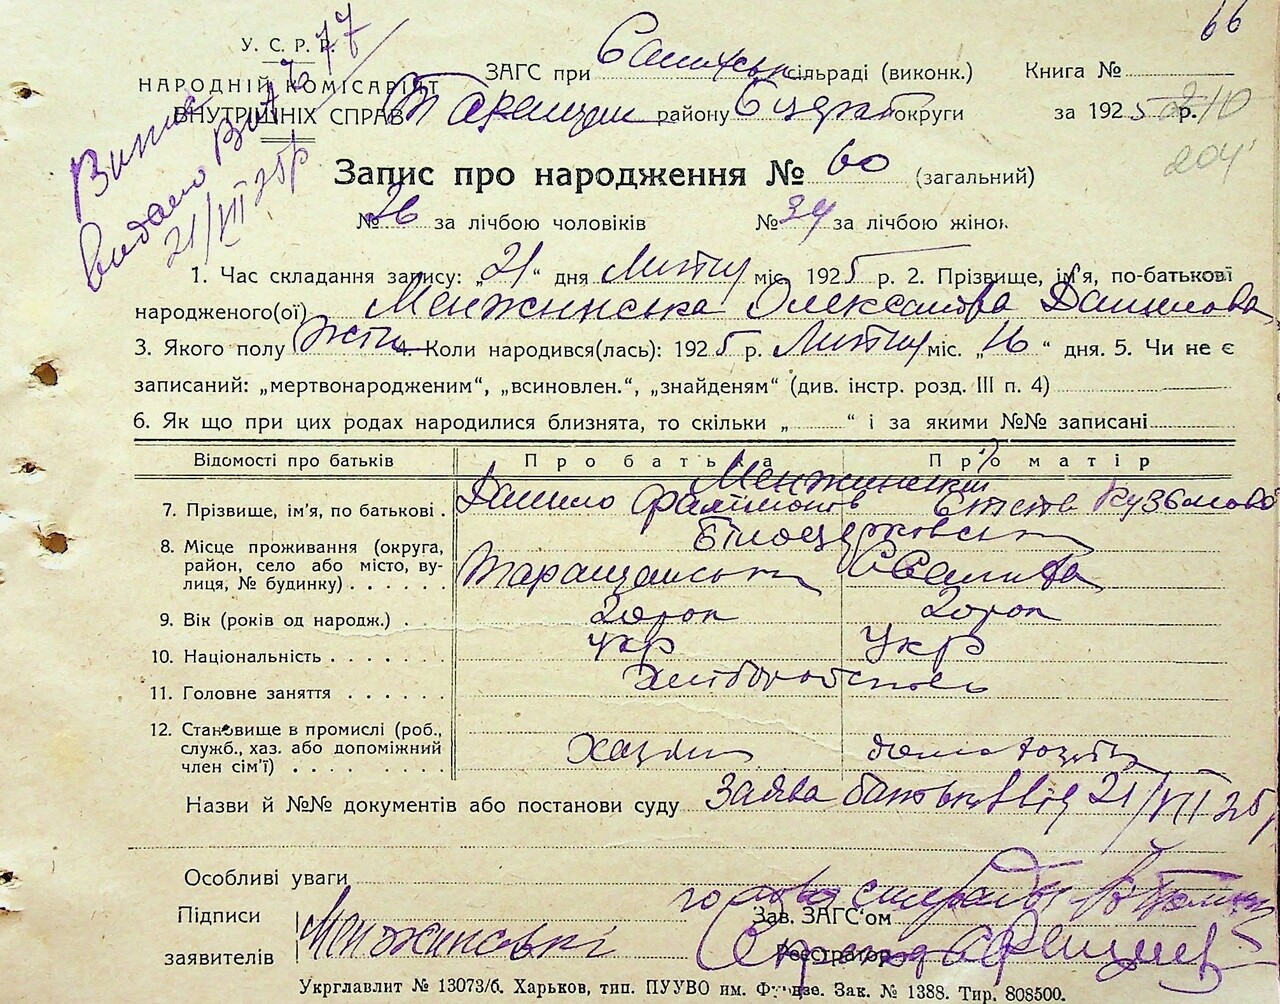 66
У. С. Р. Р.
НАРОДНІЙ КОМІСАРІЯТ
ВНУТРІШНІХ СПРАВ
Випис
видано
21/VII 25р
77
ЗАГС при сільраді (виконк.) Книга №
Таращан району Б церк округи за 1925 р.
210
204
Запис про народження № 60 (загальний)
№ 26 за лічбою чоловіків № 34 за лічбою жінок
1. Час складання запису: „21“ дня Лютня міс. 1925 р. 2. Прізвище, ім'я, по-батькові
народженого(ої) Менжинська Олександра Данилова
3. Якого полу жін 4. Коли народився(лась): 1925 р. Лютня міс. „16“ дня. 5. Чи не є
записаний: „мертвонародженим“, „всиновлен.“, „знайденям“ (див. інстр. розд. III п. 4)
6. Як що при цих родах народилися близнята, то скільки „ “ і за якими №№ записані
Відомості про батьків Про батька Про матір
Менжинські
7. Прізвище, ім'я, по батькові . Данило Кузьмова
Білоцерковськ
8. Місце проживання (округа, район, село або місто, вулиця, № будинку) Таращанськ
9. Вік (років од народж.) . . 20рок 20рок
10. Національність . . . . . . Укр Укр
11. Головне заняття . . . . . . Хліборобство
12. Становище в промислі (роб., служб., хаз. або допоміжний член сім'ї) . . . . . . . хазяїн
Назви й №№ документів або постанови суду Заява батьків від 21/VII 25р
Особливі уваги
голова сільради
Підписи заявителів Менжинські
Зав. ЗАГС'ом
Реєстратор
Укрглавлит № 13073/б. Харьков, тип. ПУУВО им. Фрунзе. Зак. № 1388. Тир. 808500.